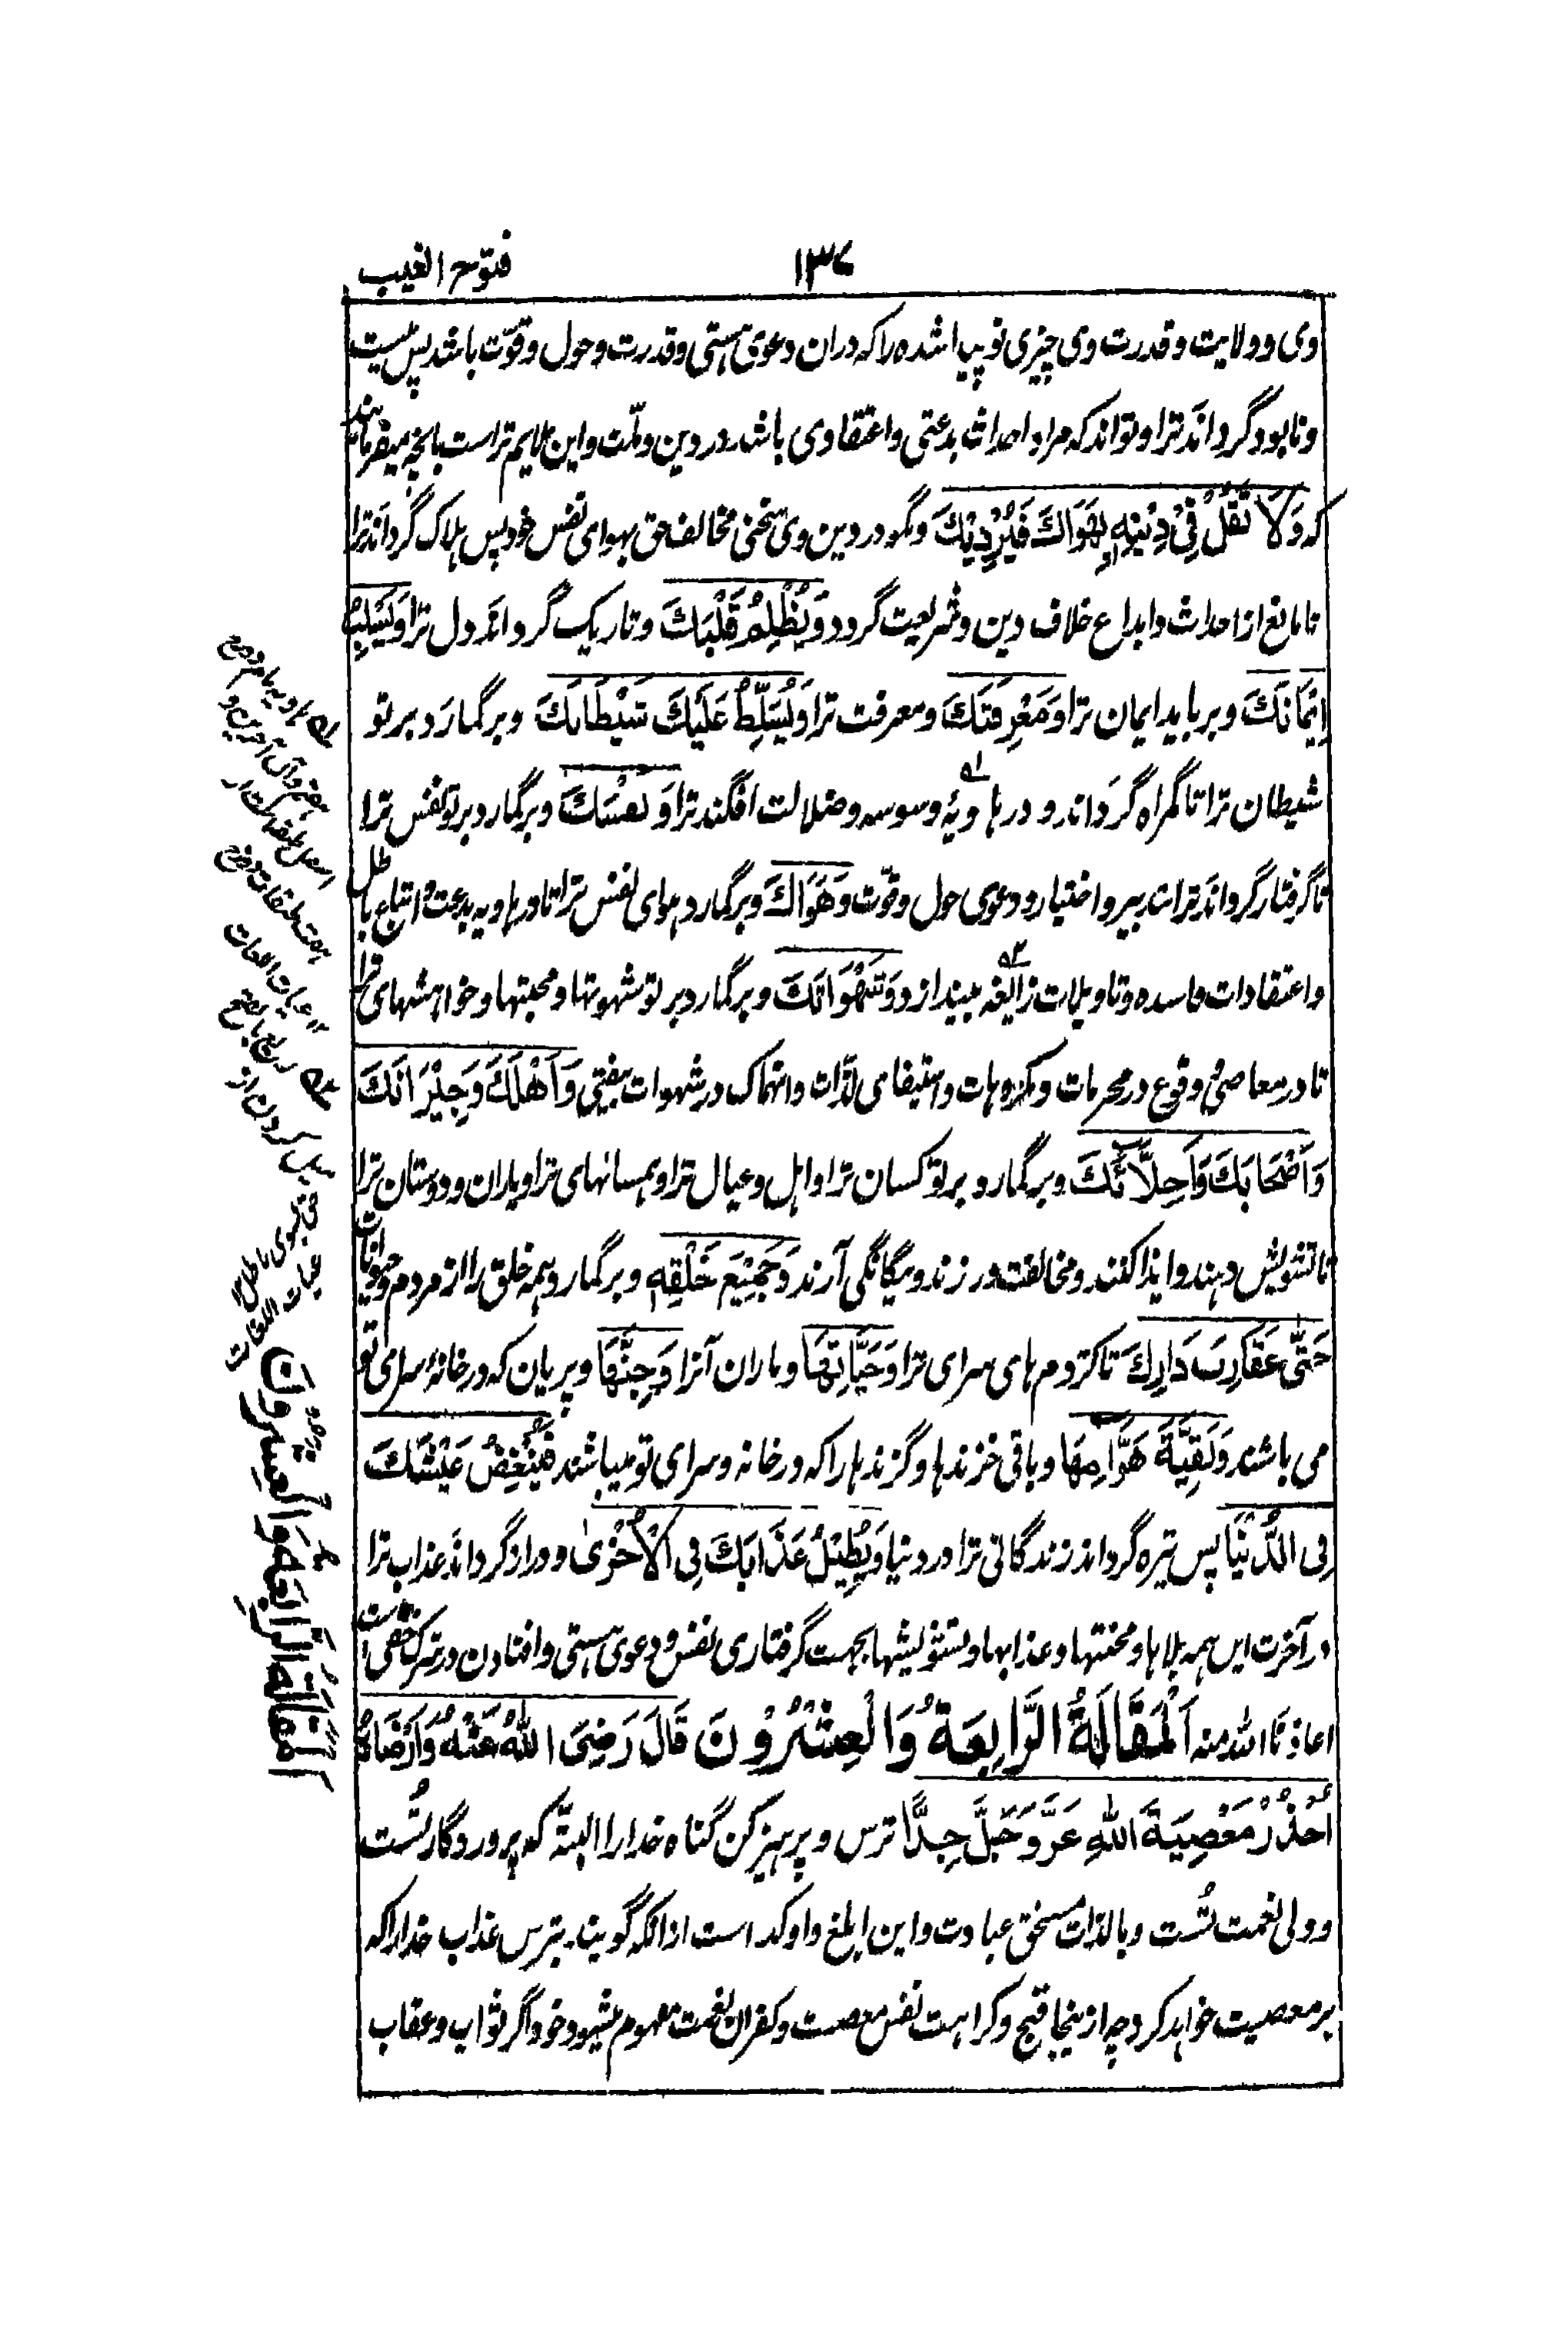 ۱۳۷ فتوح الغیب
وی وولایت وقدرت وی چیزی نو پیدا شده را که دران دعوی هستی وقدرت وحول وقوّت باشد پس نیست
ونابود گرداند ترا وتواند که مراد احداث بدعتی واعتقادی باشد در دین وملّت واین ملایم تر است بانچه میفرمایند
که وَلَا تَقُلْ فِیْ دِیْنِهٖ بِهَوَاكَ فَیُرْدِیْكَ ومگو در دین وی سخنی مخالف حق بهوای نفس خود پس هلاک گرداند ترا
تا مانع از احداث وابداع خلاف دین وشریعت گردد وَیُظْلِمُ قَلْبَكَ وتاریک گرداند دل ترا وَیَسْلُبُ
اِیْمَانَكَ وبرباید ایمان ترا وَمَعْرِفَتَكَ ومعرفت ترا وَیُسَلِّطُ عَلَیْكَ شَیْطَانَكَ وبرگمارد بر تو
شیطان ترا تا گمراه گرداند ودر هاویۂ وسوسه وضلالت افگند ترا وَنَفْسَكَ وبرگمارد بر تو نفس ترا
تا گرفتار گرداند ترا بتدبیر واختیار ودعوی حول وقوّت وَهَوَاكَ وبرگمارد هوای نفس ترا تا در هاویه بدعت واتباع باطل
واعتقادات فاسده وتاویلات زائغه بیندازد وَشَهَوَاتَكَ وبرگمارد بر تو شهوتها ومحبتها وخواهشهای ترا
تا در معاصی وقوع در محرمات ومکروهات واستیفای لذّات وانهماک در شهوات بیفتی وَاَهْلَكَ وَجِیْرَانَكَ
وَاَصْحَابَكَ وَاَخِلَّائَكَ وبرگمارد بر تو کسان ترا واهل وعیال ترا وهمسایهای ترا ویاران ودوستان ترا
تا تشویش دهند وایذا کنند ومخالفت ورزند وبیگانگی آرند وَجَمِیْعَ خَلْقِهٖ وبرگمارد همه خلق را از مردم وحیوانات
حَتّٰی عَقَارِبَ دَارِكَ تا کژدم های سرای ترا وَحَیَّاتِهَا وماران آنرا وَجِنِّهَا وپریان که در خانۂ سرای تو
می باشند وَبَقِیَّةَ هَوَّامِهَا وباقی خزندها وگزندها را که در خانه وسرای تو میباشند فَیُنَغِّصُ عَیْشَكَ
فِی الدُّنْیَا پس تیره گرداند زندگانی ترا در دنیا وَیُطِیْلُ عَذَابَكَ فِی الْاُخْرٰی ودراز گرداند عذاب ترا
در آخرت این همه بلاها ومحنتها وعذابها وتشویشها بجهت گرفتاری نفس ودعوی هستی وافتادن در شرک خفی است
اعاذنا الله منه اَلْمَقَالَةُ الرَّابِعَةُ وَالْعِشْرُوْنَ قَالَ رَضِیَ اللّٰهُ عَنْهُ وَاَرْضَاهُ
اُحْذُرْ مَعْصِیَةَ اللّٰهِ عَزَّ وَجَلَّ جِدًّا ترس وپرهیز کن گناه خدا را البتّه که پروردگار تُست
وولی نعمت تُست وبالذّات مستحق عبادت واین ابلغ واوکد است از انکه گویند بترس عذاب خدا را که
بر معصیت خواهد کرد چه از ینجا قبح وکراهت نفس معصیت وکفران نعمت مفهوم میشود وخود اگر ثواب وعقاب
هفت طبقات دوزخ
غیاث اللغات
میل کردن از
حق بسوی باطل ۱۲
غیاث اللغات
اَلْمَقَالَةُ الرَّابِعَةُ وَالْعِشْرُوْنَ